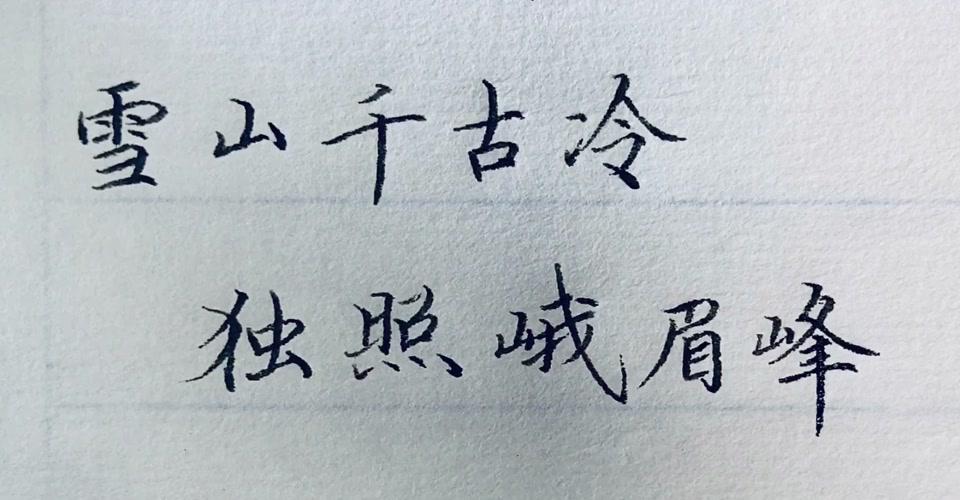 雪山千古冷
独照峨眉峰